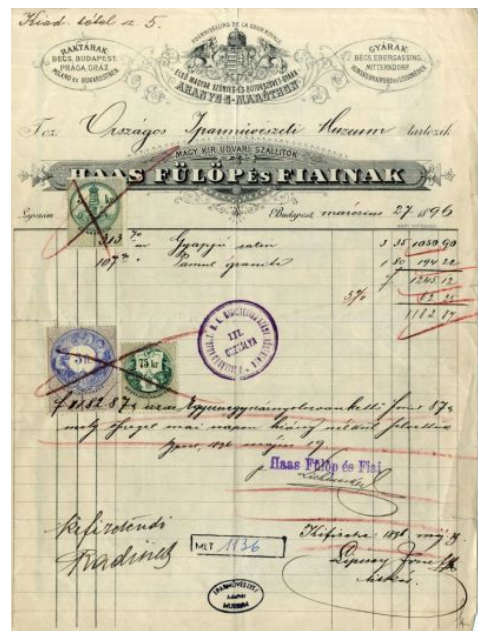 Kiad. tétel sz 5.
FOURNISSEURS DE LA COUR ROYALE
RAKTÁRAK:
BECS, BUDAPEST,
PRÁGA, GRÁZ
MILANO és BUKARESTBEN.
GYÁRAK
BECS, EBERGASSING,
MITTERNDORF,
ELSŐ MAGYAR SZŐNYEG-ÉS BUTORSZÖVET-GYÁRA
ARANYOS-MARÓTHON
Országos Iparművészeti Muzeum tartozik
MAGY. KIR. UDVARI SZÁLLITÓK
HAAS FÜLÖP ÉS FIAINAK
Lapszám
Budapest, marczius 27. 1896
kr
313 70 m Gyapjú satin 3 35 1050 90
107 " Pamut granite 1 80 194 22
1245 12
5% 62 25
1182 87
III.
5 ft
75 kr
f 1182.87 azaz Egyezeregyszáznyolcvankettő forint 87
mely összeget mai napon hiány nélkül felvettük
Haas Fülöp és Fiai
Kifizetendő
Radisics
Kifizetve: 1896 máj.
MLT 1136
IPARMŰVÉSZETI
Adattár
MUZEUM